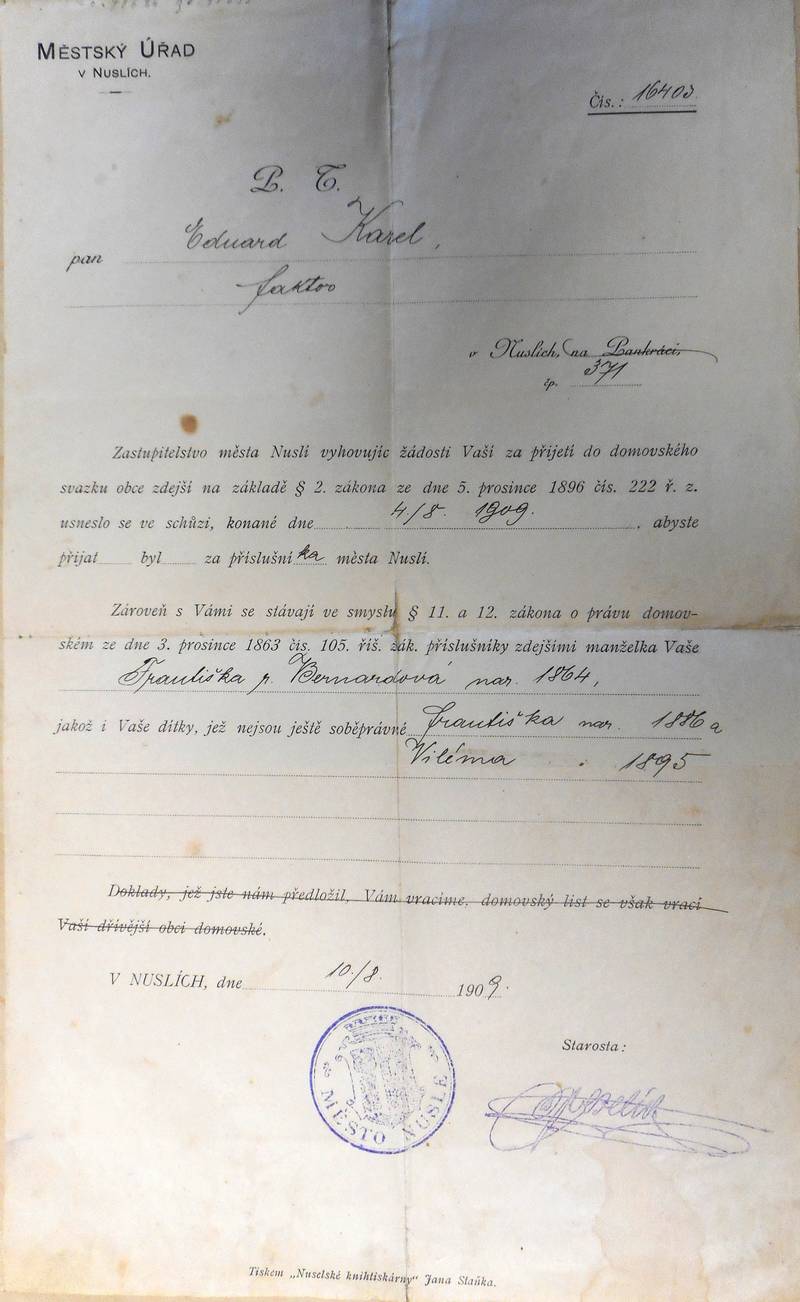 MĚSTSKÝ ÚŘAD
V NUSLÍCH.
Čís.: 16403
P. T.
pan Eduard Karel,
faktor
v Nuslích, na Pankráci,
čp. 371
Zastupitelstvo města Nuslí vyhovujíc žádosti Vaší za přijetí do domovského
svazku obce zdejší na základě § 2. zákona ze dne 5. prosince 1896 čís. 222 ř. z.
usneslo se ve schůzi, konané dne 4/8. 1909. , abyste
přijat byl za příslušníka města Nuslí.
Zároveň s Vámi se stávají ve smyslu § 11. a 12. zákona o právu domov-
ském ze dne 3. prosince 1863 čís. 105. říš. zák. příslušníky zdejšími manželka Vaše
Františka r. Bernardová nar. 1864,
jakož i Vaše dítky, jež nejsou ještě soběprávné Františka nar. 1886 a
Viléma " 1895
Doklady, jež jste nám předložil, Vám vracíme, domovský list se však vrací
Vaší dřívější obci domovské.
V NUSLÍCH, dne 10./8. 1909.
Starosta:
MĚSTO NUSLE
Tiskem „Nuselské knihtiskárny" Jana Staňka.